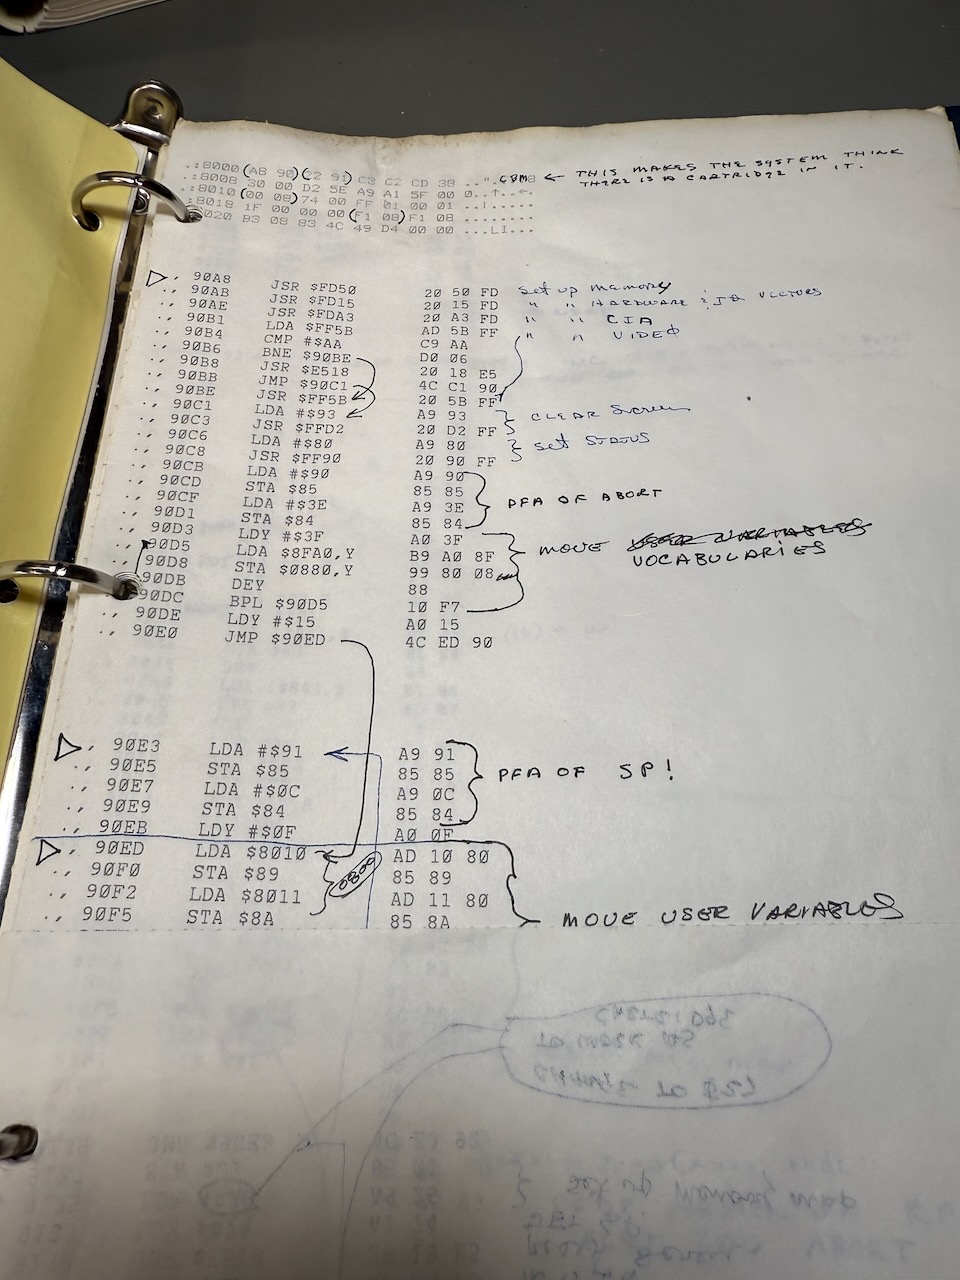 .:8000 (A8 90)(C2 91) C3 C2 CD 38 ..".CBM8 ← THIS MAKES THE SYSTEM THINK
THERE IS A CARTRIDGE IN IT.
.:8008 30 00 D2 5E A9 A1 5F 00 0..↑..←.
.:8010 (00 08) 74 00 FF 01 00 01
.:8018 1F 00 00 00 (F1 08) F1 08 ........
020 B3 08 83 4C 49 D4 00 00 ...LI...
., 90A8 JSR $FD50 20 50 FD set up memory
., 90AB JSR $FD15 20 15 FD " " HARDWARE & IO VECTORS
., 90AE JSR $FDA3 20 A3 FD " " CIA
., 90B1 LDA $FF5B AD 5B FF " " VIDEO
., 90B4 CMP #$AA C9 AA
., 90B6 BNE $90BE D0 06
., 90B8 JSR $E518 20 18 E5
., 90BB JMP $90C1 4C C1 90
., 90BE JSR $FF5B 20 5B FF
., 90C1 LDA #$93 A9 93 CLEAR Screen
., 90C3 JSR $FFD2 20 D2 FF
., 90C6 LDA #$80 A9 80 set STATUS
., 90C8 JSR $FF90 20 90 FF
., 90CB LDA #$90 A9 90
., 90CD STA $85 85 85 PFA OF ABORT
., 90CF LDA #$3E A9 3E
., 90D1 STA $84 85 84
., 90D3 LDY #$3F A0 3F
., 90D5 LDA $8FA0,Y B9 A0 8F MOVE USER VARIABLES
VOCABULARIES
., 90D8 STA $0880,Y 99 80 08
90DB DEY 88
90DC BPL $90D5 10 F7
., 90DE LDY #$15 A0 15
., 90E0 JMP $90ED 4C ED 90
., 90E3 LDA #$91 A9 91
., 90E5 STA $85 85 85 PFA OF SP!
., 90E7 LDA #$0C A9 0C
., 90E9 STA $84 85 84
., 90EB LDY #$0F A0 0F
., 90ED LDA $8010 AD 10 80
., 90F0 STA $89 0800 85 89
., 90F2 LDA $8011 AD 11 80
., 90F5 STA $8A 85 8A MOVE USER VARIABLES